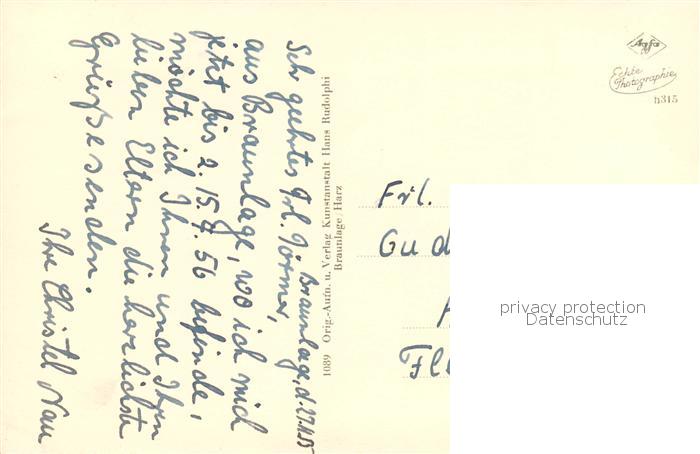 Braunlage, d. 27.1.55
Sehr geehrtes Frl. Dörmer,
aus Braunlage, wo ich mich
jetzt bis z. 15.4.56 befinde,
möchte ich Ihnen und Ihren
lieben Eltern die herzlichste
Grüße senden.
Ihre Christel Nau
1089 Orig.-Aufn. u. Verlag Kunstanstalt Hans Rudolphi
Braunlage/Harz
Agfa
Echte
Photographie
h315
Frl.
Gud
Fl
privacy protection
Datenschutz